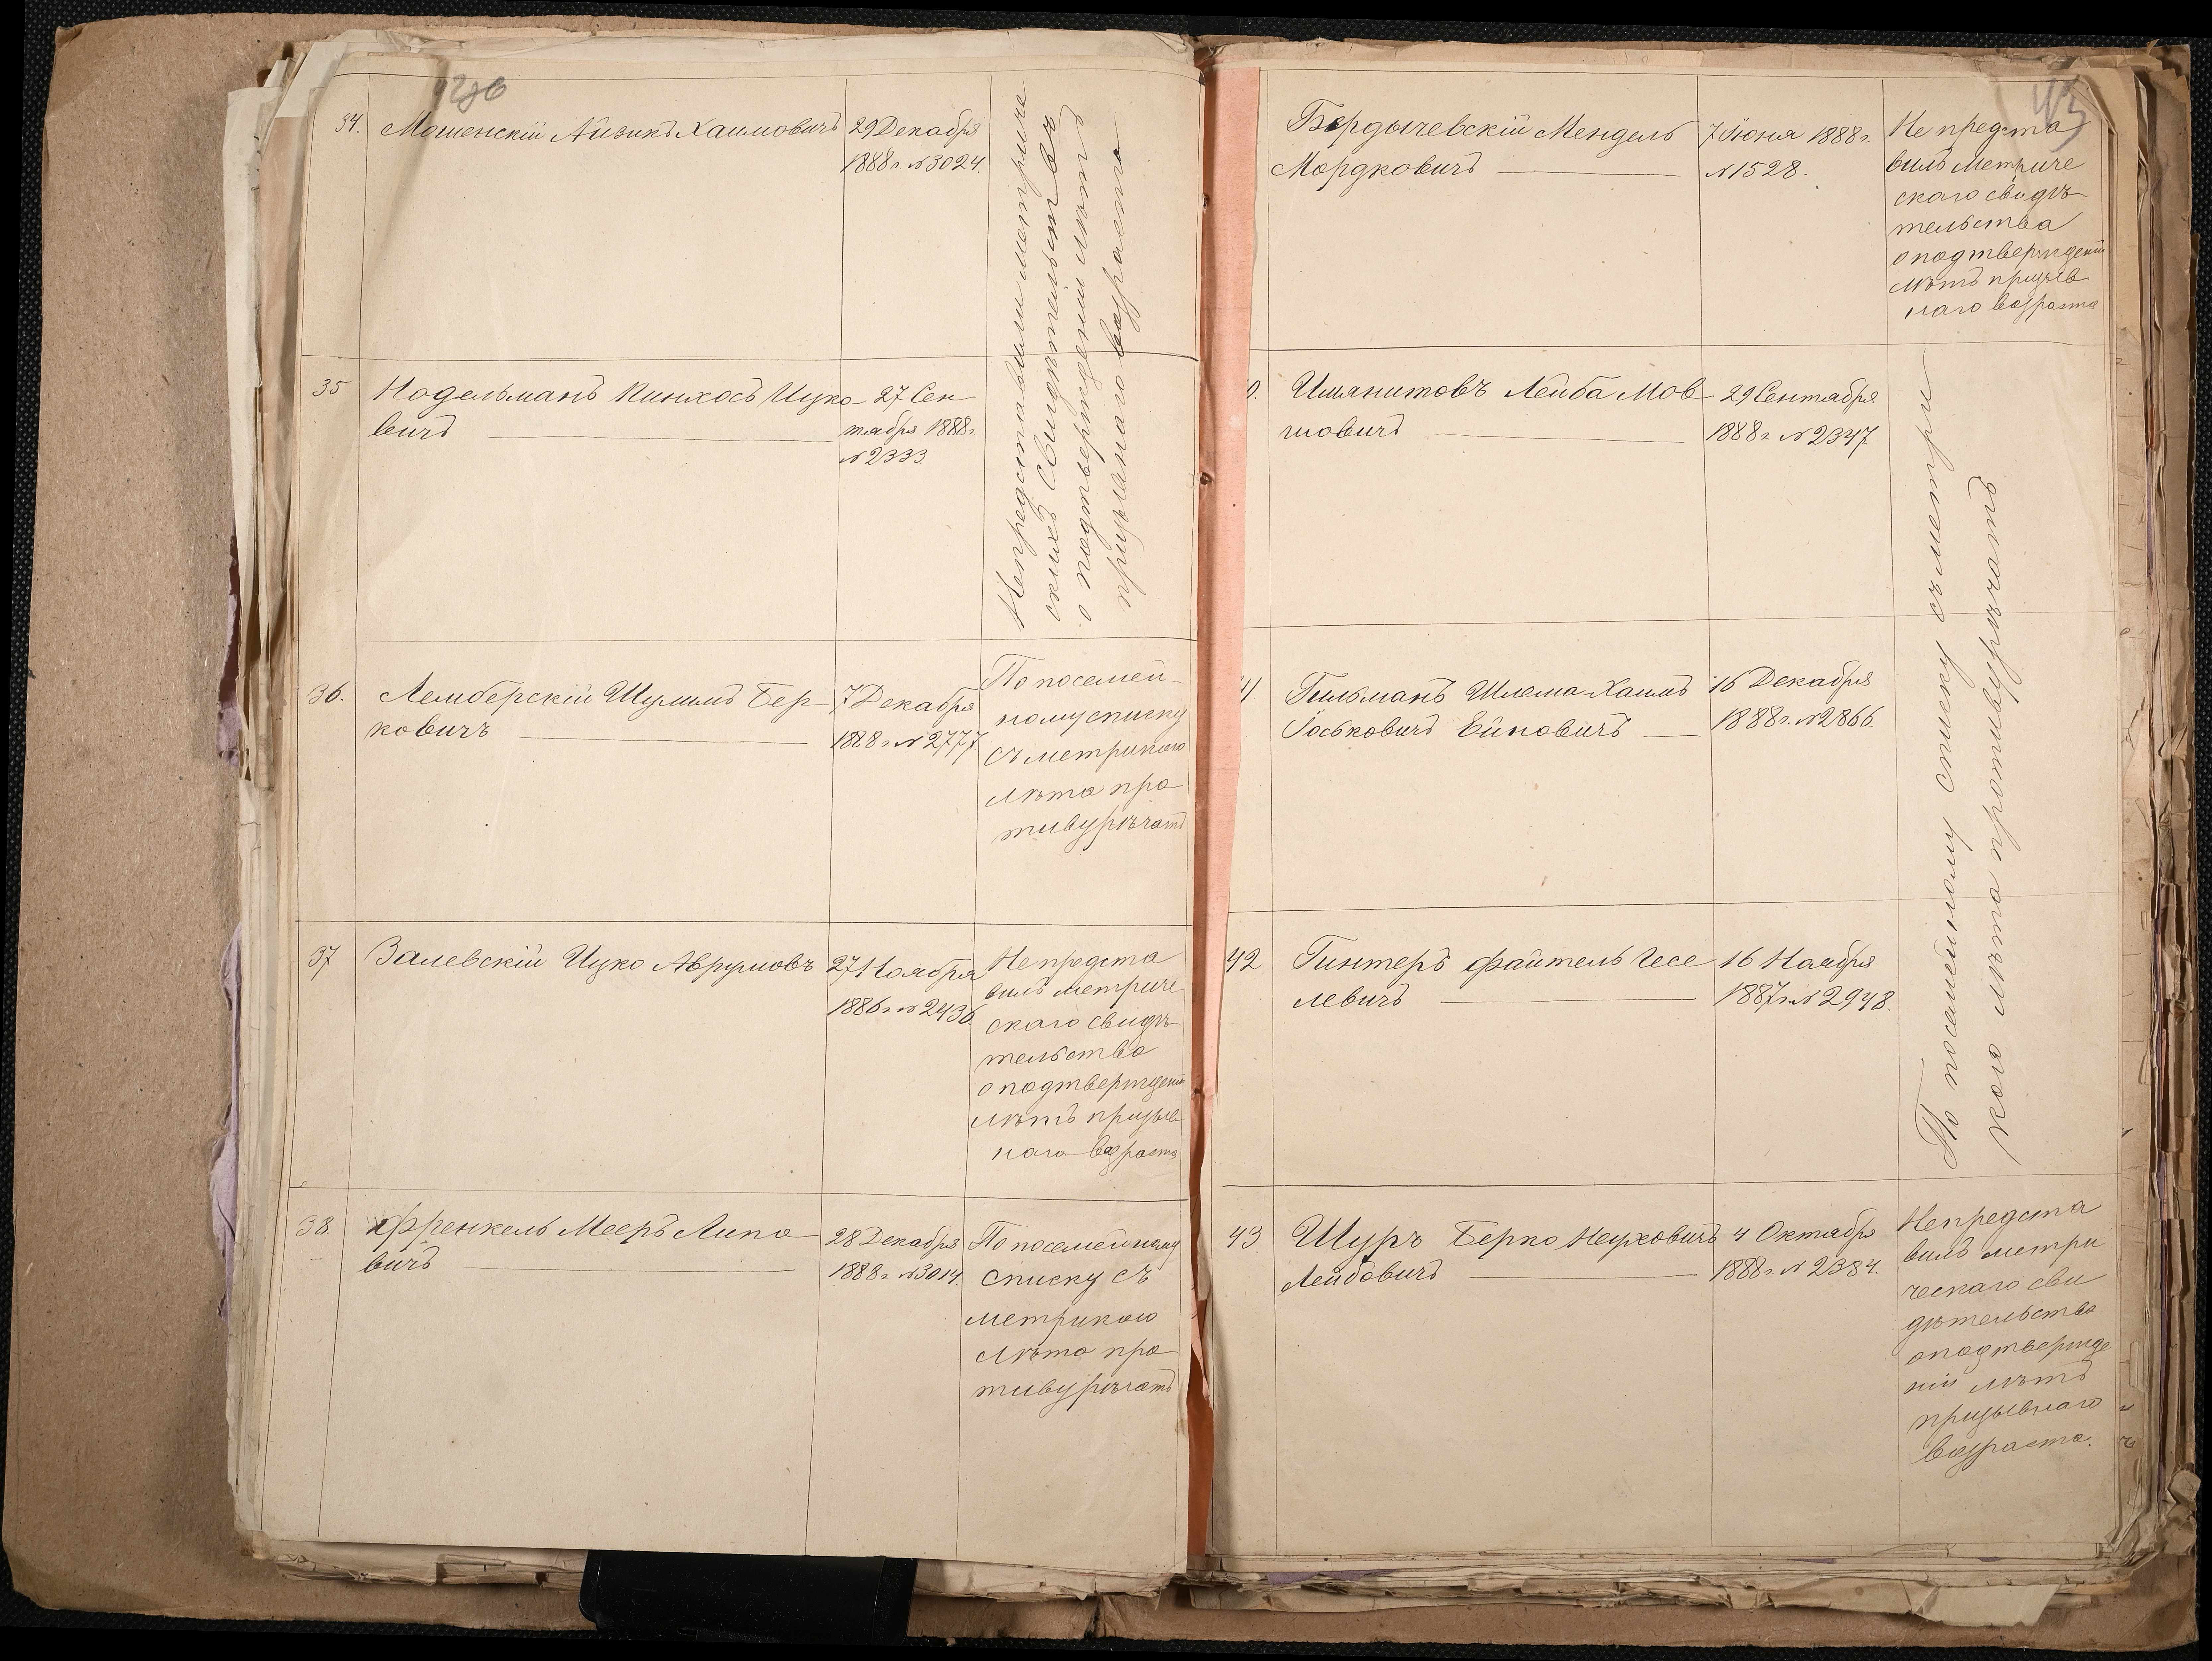 34. Мошенскій Айзикъ Хаимовичъ
29 Декабря
1888 г. №3024.
Непредставили метриче
скихъ Свидѣтельствъ
о подтвержденіи лѣтъ
призывнаго возраста
35 Нодельманъ Пинхосъ Ицко
вичъ
27 Сен
тября 1888 г.
№2333.
36. Лемберскій Шулимъ Бер
ковичъ
7 Декабря
1888 г. №2777.
По посемей-
ному списку
съ метрикою
лѣта про
тивурѣчатъ
37 Залевскій Ицко Аврумовъ
27 Ноября
1886 г. №2436.
Непредста
вилъ метриче
скаго свидѣ
тельства
о подтвержденіи
лѣтъ призыв
наго возраста
38. Френкель Мееръ Липо
вичъ
28 Декабря
1888 г. №3014.
По посемейному
списку съ
метрикою
лѣта про
тивурѣчатъ
43
Бердычевскій Мендель
Мордковичъ
7 Іюня 1888 г.
№1528.
Непредста
вилъ метриче
скаго свидѣ
тельства
о подтвержденіи
лѣтъ призыв
наго возраста
0. Имянитовъ Лейба Мов
шовичъ
29 Сентября
1888 г. №2347
По посемейному списку съ метри
кою лѣта противурѣчатъ
41. Гильманъ Шлема-Хаимъ
Іоськовичъ
16 Декабря
1888 г. №2866.
42 Гинтеръ Файтель Іосе
левичъ
16 Ноября
1887 г. №2948.
43. Шуръ Берко Нуховичъ
Лейбовичъ
4 Октября
1888 г. №2384.
Непредста
вилъ метри
ческаго сви
дѣтельства
о подтвержде
ніи лѣтъ
призывнаго
возраста.